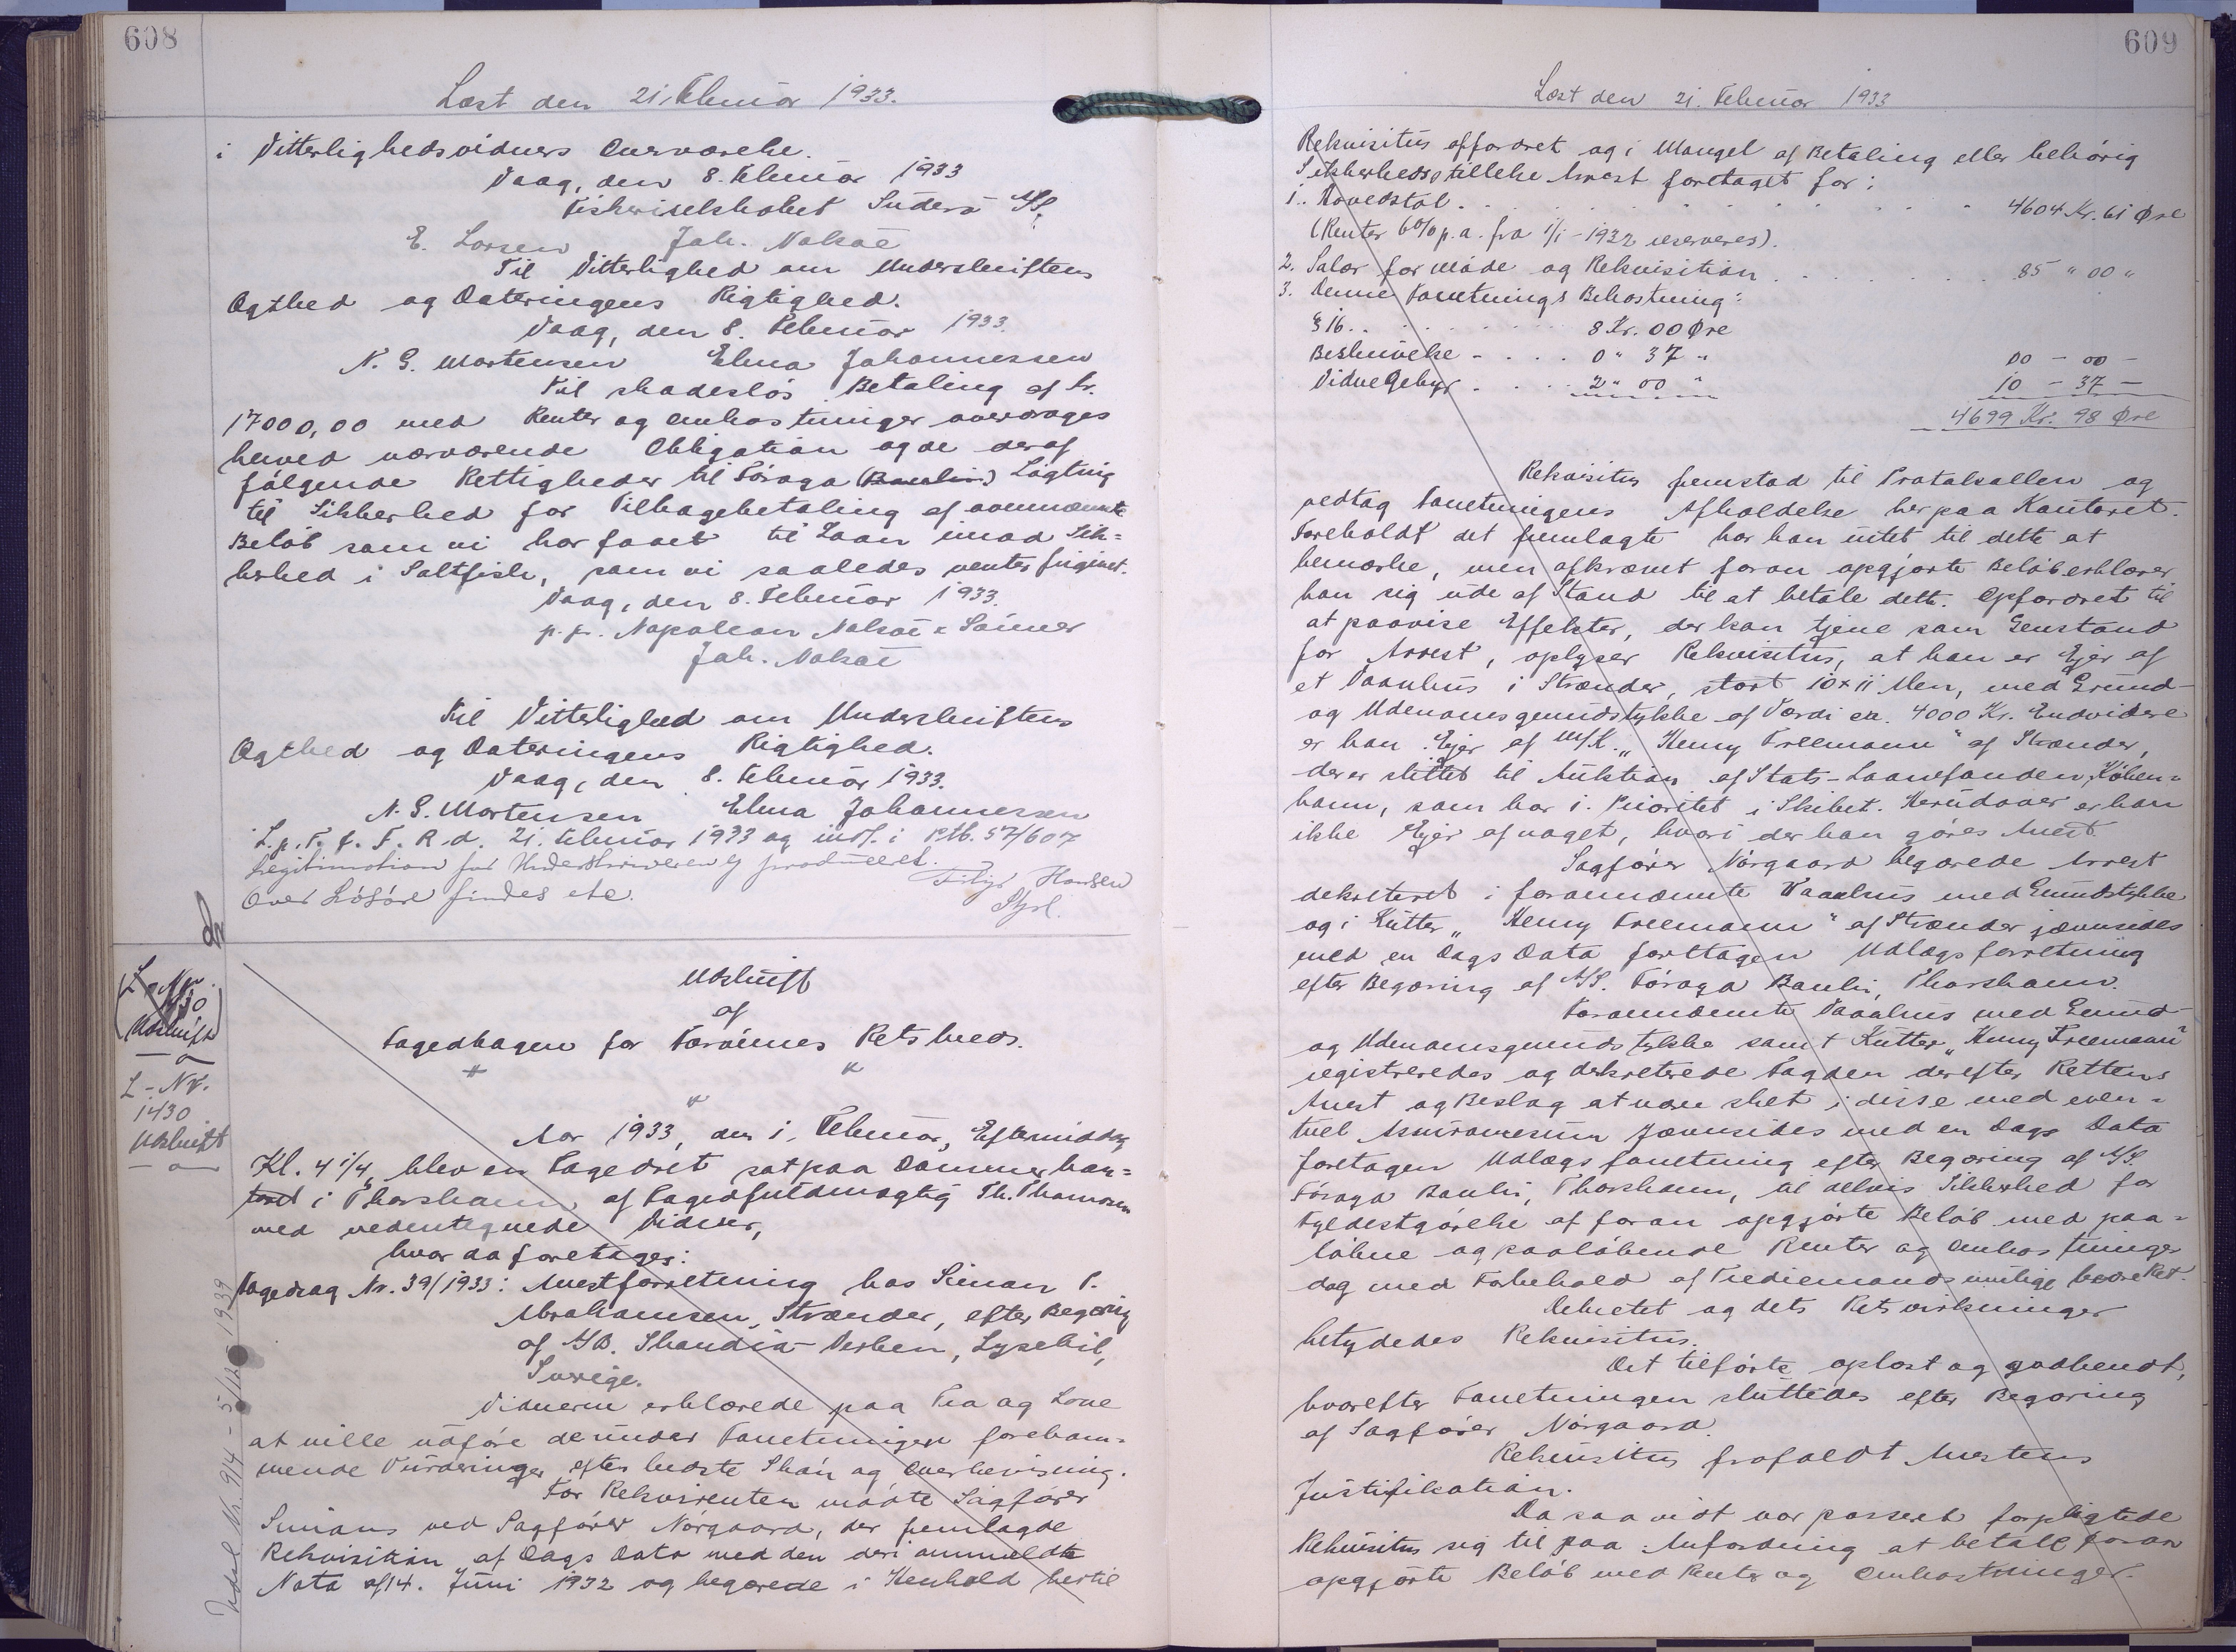 608
Læst den 21. Februar 1933.
i Vitterlighedsvidners Overværelse.
Vaag, den 8. Februar 1933
Fiskeriselskabet Suderö A/S.
E. Larsen Joh. Nolsøe
Til Vitterlighed om Underskriftens
Ægthed og Dateringens Rigtighed.
Vaag, den 8. Februar 1933.
N. G. Mortensen Elma Johannessen
Til skadeslös Betaling af Kr.
17000,00 med Renter og Omkostninger overdrages
herved nærværende Obligation og de deraf
fölgende Rettigheder til Föroya (Banki) Lögting
til Sikkerhed for Tilbagebetaling af ovennævnte
Belöb som vi har faaet til Laan imod Sik=
kerhed i Saltfisk, som vi saaledes venter frigivet.
Vaag, den 8. Februar 1933.
p. pr. Napoleon Nolsøe & Sönner
Joh. Nolsøe
Til Vitterlighed om Underskriftens
Ægthed og Dateringens Rigtighed.
Vaag, den 8. Februar 1933.
N. G. Mortensen Elma Johannessen
L. p. T. f. F. R. d. 21. Februar 1933 og indf. i Ptb. S7/607
Legitimation for Underskriveren ej produceret.
Over Lösöre findes etc.
Hansen
L-Nr.
1430
Udskrift
L-Nr.
1430
Udskrift
Udskrift
af
Fogedbogen for Færöernes Retskreds.
Aar 1933, den 1. Februar, Eftermiddag
Kl. 4 1/4, blev en Fogedret sat paa Dommerkon=
toret i Thorshavn af Fogedfuldmægtig Th. Thomsen
med medundertegnede Vidner,
hvor da foretages:
Fogedsag Nr. 39/1933: Arrestforretning hos Simon P.
Abrahamsen, Strænder, efter Begæring
af A/B. Skandia-Verken, Lysekil,
Sverige.
Vidnerne erklærede paa Tro og Love
at ville udföre de under Forretningen forekom=
mende Vurderinger efter bedste Skön og Overbevisning.
For Rekvirenten mödte Sagförer
Simans ved Sagförer Nörgaard, der fremlagde
Rekvisition af Dags Dato med den deri anmeldte
Nota af 14. Juni 1932 og begærede i Henhold hertil
Udsl. Nr. 914 - 5/12 1939
609
Læst den 21. Februar 1933
Rekvisitus opfordret og i Mangel af Betaling eller behörig
Sikkerhedsstillelse Arrest foretaget for:
1. Hovedstol . . . . 4604 Kr. 61 Øre
(Renter 6% p.a. fra 1/1-1932 reserveres).
2. Salær for Möde og Rekvisition . . . . 85 " 00 "
3. Denne Forretnings Bekostning:
§ 16. . . . . 8 Kr. 00 Øre
Beskrivelse - . . . 0 " 37 "
00 - 00 -
Vidnegebyr . . . . 2 " 00 "
10 - 37 -
4699 Kr. 98 Øre
Rekvisitus fremstod til Protokollen og
vedtog Forretningens Afholdelse her paa Kontoret.
Foreholdt det fremlagte har han intet til dette at
bemærke, men afkrævet foran opgjorte Belöb erklærer
han sig ude af Stand til at betale dette. Opfordret til
at paavise Effekter, der kan tjene som Genstand
for Arrest, oplyser Rekvisitus, at han er Ejer af
et Vaanhus i Strænder, stort 10 x 11 Alen, med Grund-
og Udenomsgrundstykke af Værdi ca. 4000 Kr. Endvidere
er han Ejer af M/K. „Henny Freemann" af Strænder,
der er stillet til Auktion af Stats-Laanefonden, Köben=
havn, som har 1. Prioritet i Skibet. Herudover er han
ikke Ejer af noget, hvori der kan göres Arrest.
Sagförer Nörgaard begærede Arrest
dekreteret i forannævnte Vaanhus med Grundstykke
og i Kutter „Henny Freemann" af Strænder jævnsides
med en Dags Dato foretagen Udlægsforretning
efter Begæring af A/S. Föroya Banki, Thorshavn.
Forannævnte Vaanhus med Grund-
og Udenomsgrundstykke samt Kutter „Henny Freemann"
registreredes og dekreterede Fogden derefter Rettens
Arrest og Beslag at være sket i disse med even=
tuel Assurancesum jævnsides med en Dags Dato
foretagen Udlægsforretning efter Begæring af A/S.
Föroya Banki, Thorshavn, til delvis Sikkerhed for
Fyldestgörelse af foran opgjorte Belöb med paa=
löbne og paalöbende Renter og Omkostninger
dog med Forbehold af Trediemands mulige bedre Ret.
Dekretet og dets Retsvirkninger
betydedes Rekvisitus.
Det tilförte oplæst og godkendt,
hvorefter Forretningen sluttedes efter Begæring
af Sagförer Nörgaard.
Rekvisitus frafaldt Arrestens
Justifikation.
Da saavidt var passeret forpligtede
Rekvisitus sig til paa Anfordring at betale foran
opgjorte Belöb med Renter og Omkostninger.